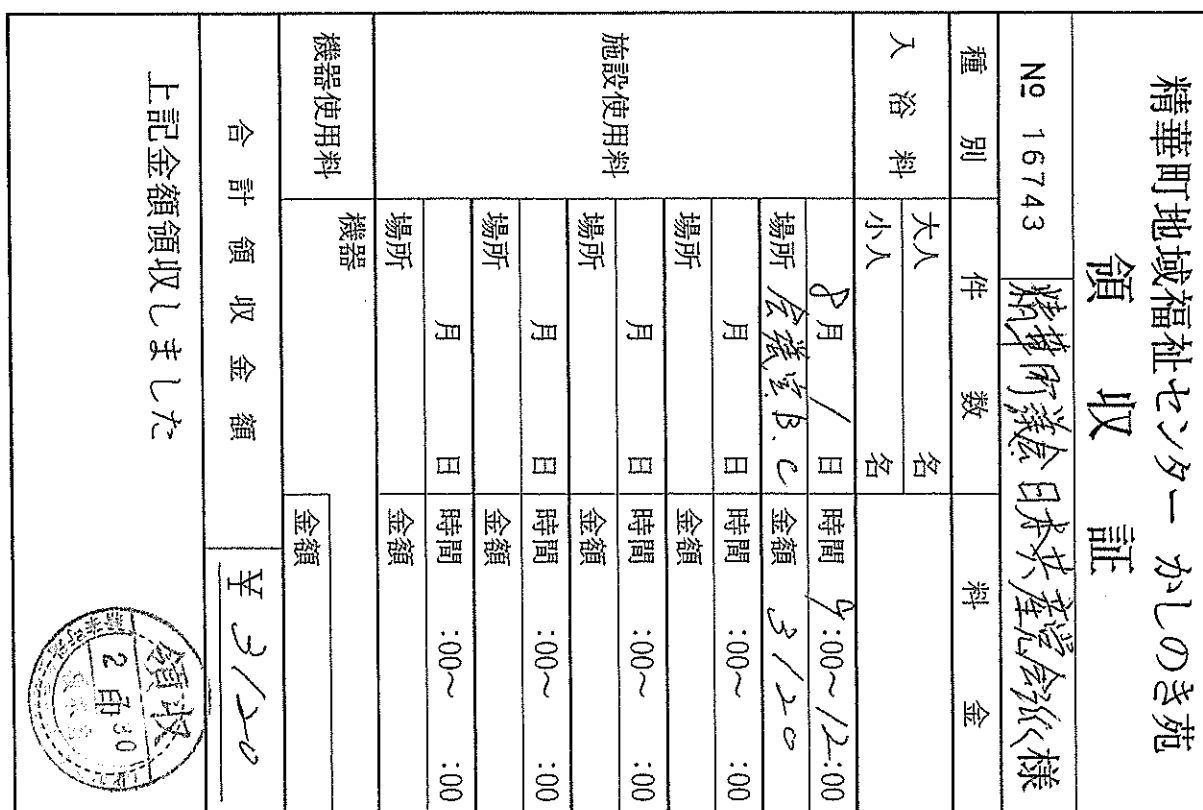 精華町地域福祉センター かしのき苑
領収証
№ 16743 精華町議会 日本共産党会派様
種別 件数 料金
入浴料 大人 名
小人 名
施設使用料 8月1日 時間 9:00～12:00
場所 会議室B.C 金額 3120
月 日 時間 :00～ :00
場所 金額
月 日 時間 :00～ :00
場所 金額
月 日 時間 :00～ :00
場所 金額
月 日 時間 :00～ :00
場所 金額
機器使用料 機器 金額
合計領収金額 ¥3120
上記金額領収しました
領収